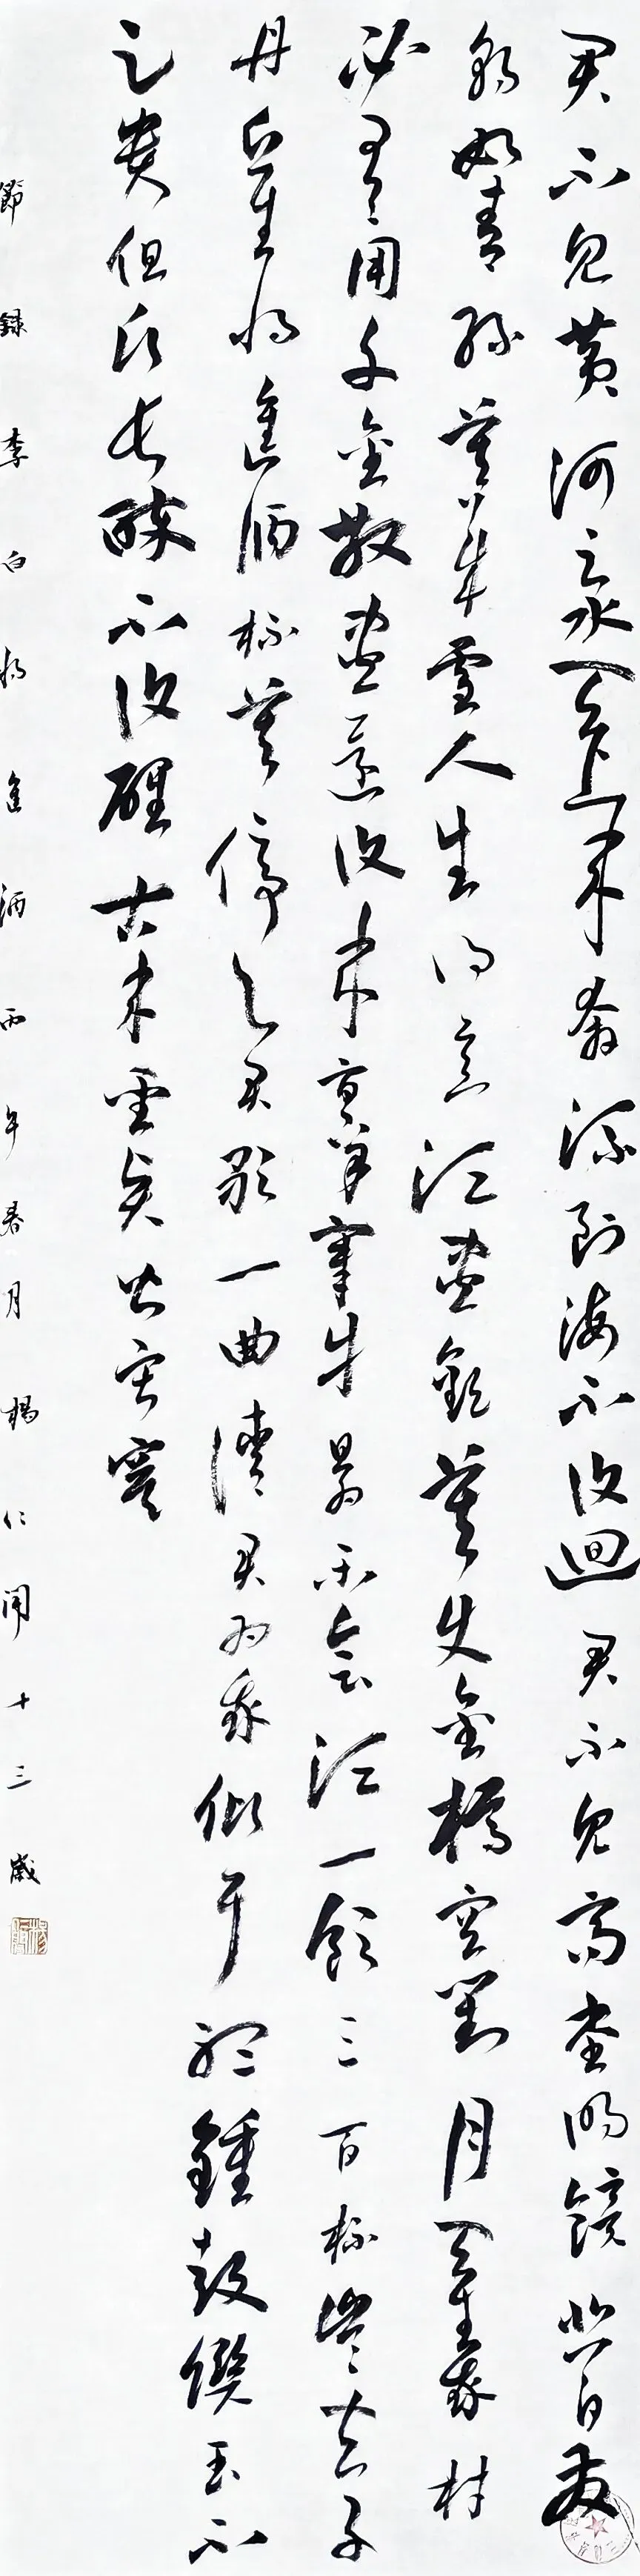 君不見黃河之水天上来奔流到海不復迴君不見高堂明鏡悲白髮
朝如青絲暮成雪人生得意須盡歡莫使金樽空對月天生我材
必有用千金散盡還復来烹羊宰牛且為樂會須一飲三百杯岑夫子
丹丘生將進酒杯莫停與君歌一曲請君為我傾耳聽鐘鼓饌玉不
足貴但願長醉不復醒古来聖賢皆寂寞
節録李白將進酒丙午春月楊仁十三歲